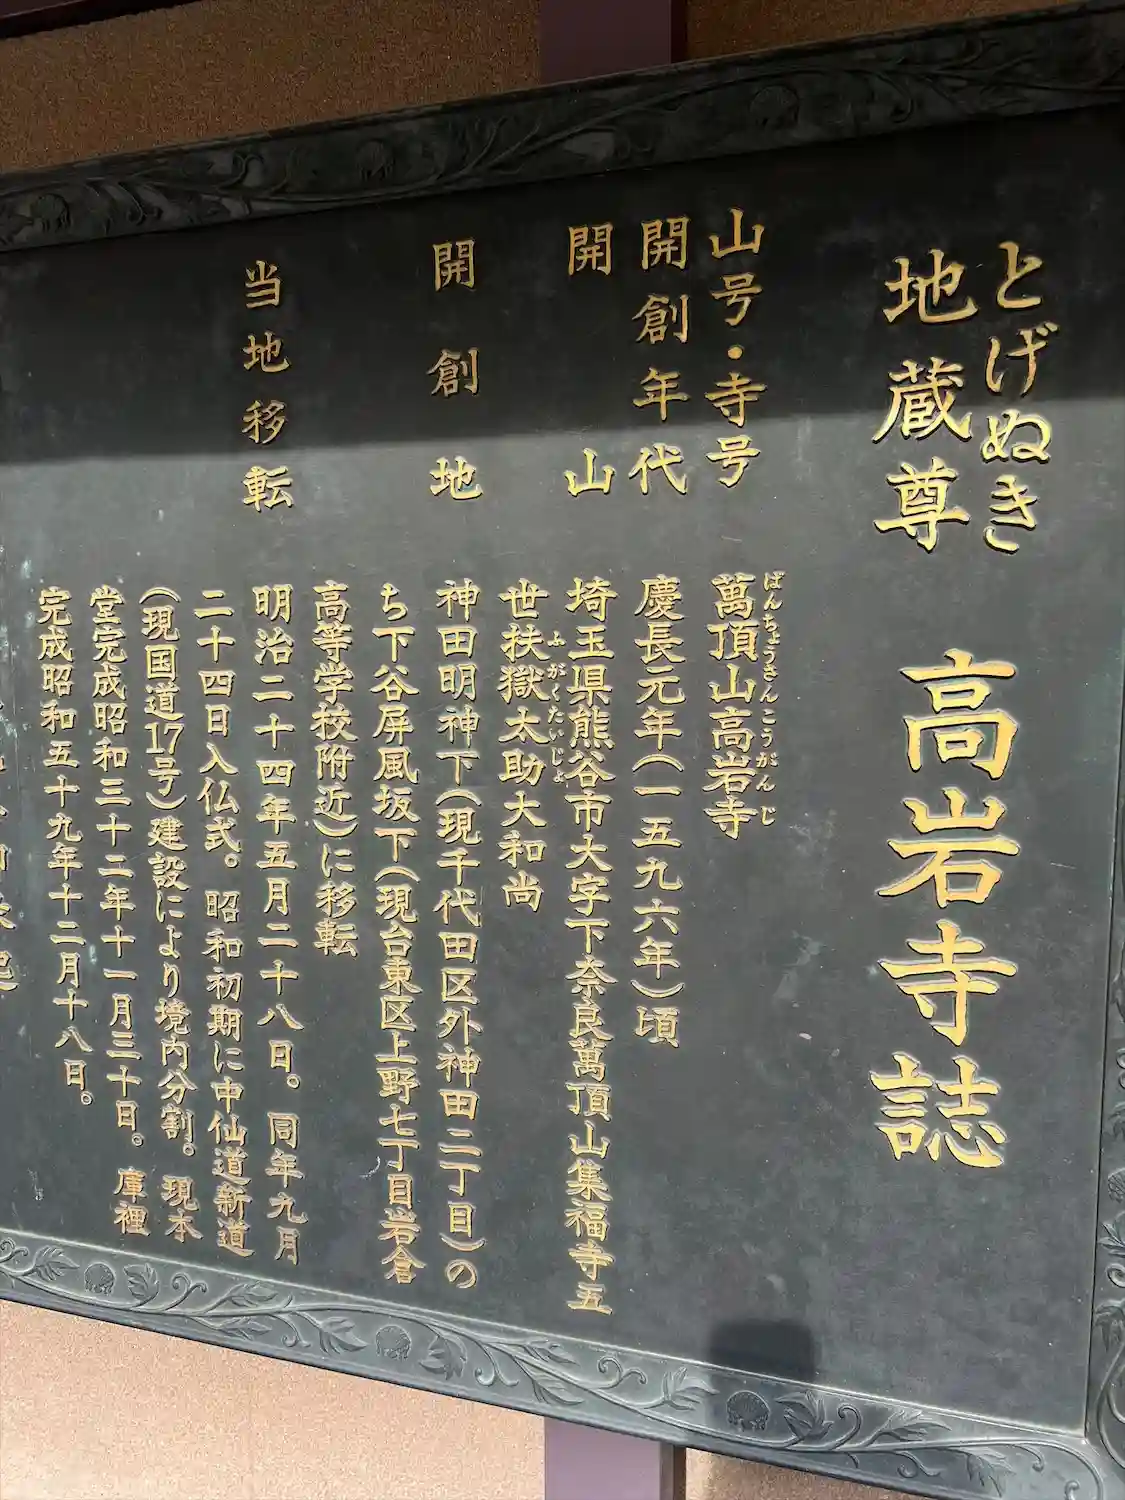 とげぬき
地蔵尊 高岩寺誌
山号・寺号 萬頂山高岩寺
ばんちょうざんこうがんじ
開創年代 慶長元年(一五九六年)頃
開山 埼玉県熊谷市大字下奈良萬頂山集福寺五
世扶嶽太助大和尚
ふがくたいじょ
開創地 神田明神下(現千代田区外神田二丁目)の
ち下谷屏風坂下(現台東区上野七丁目岩倉
高等学校附近)に移転
当地移転 明治二十四年五月二十八日。同年九月
二十四日入仏式。昭和初期に中仙道新道
(現国道17号)建設により境内分割。現本
堂完成昭和三十二年十一月三十日。庫裡
完成昭和五十九年十二月十八日。